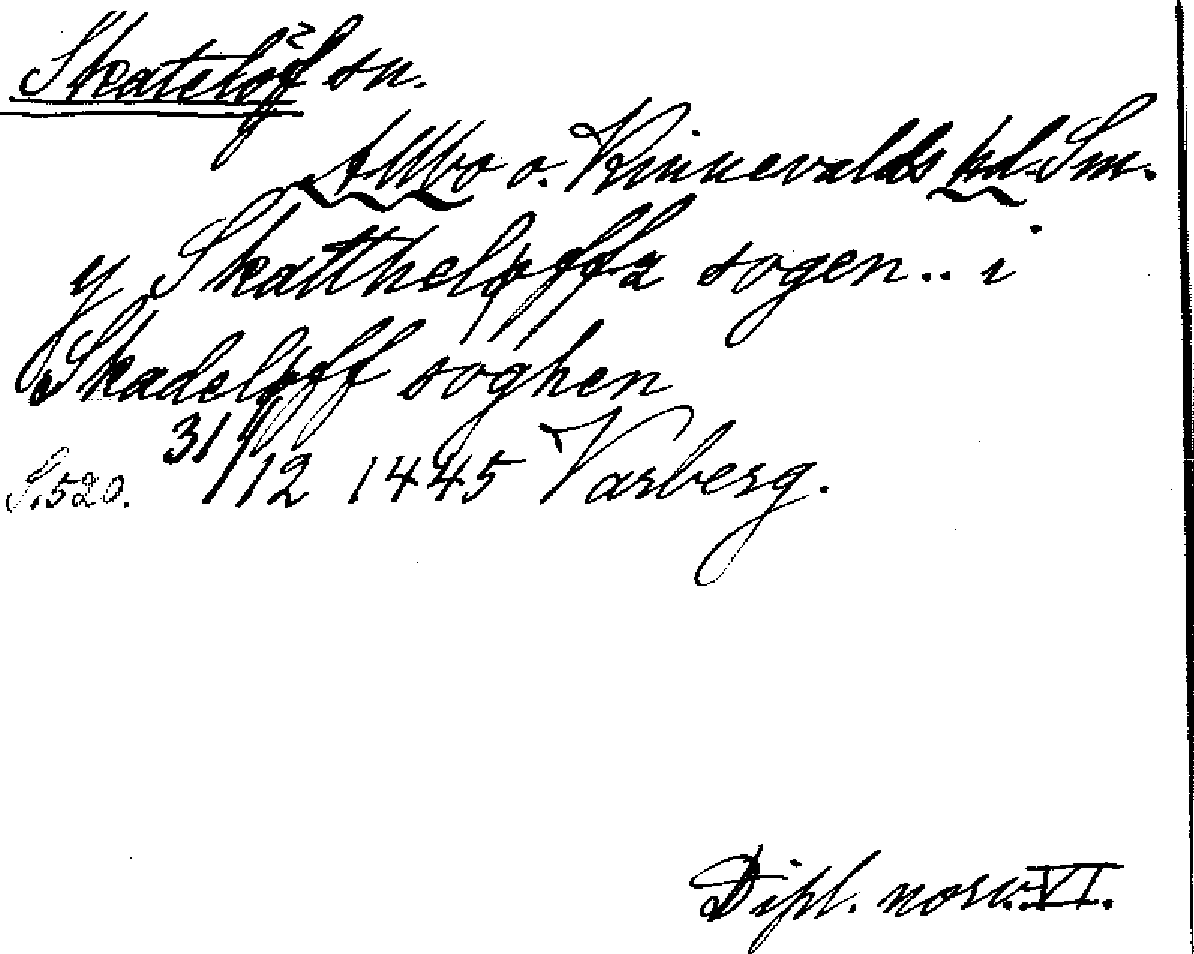 Skatelöf sn.
Allbo o. Kinnevalds hd. Sm.
y Skattheløffa sogen.. i
Skadeløff soghen
S. 520. 31/12 1445 Varberg.
Dipl. norv. VI.